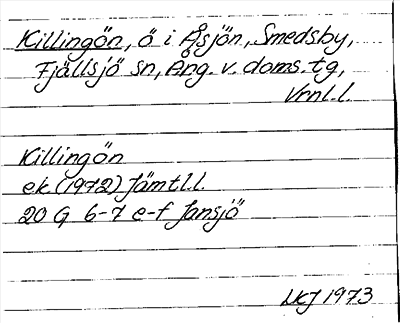 Killingön, ö i Åsjön, Smedsby,
Fjällsjö sn, Ång. v. doms. tg,
Vrnl. l.
Killingön
ek (1972) Jämtl. l.
20 G 6-7 e-f Jansjö
LKJ 1973